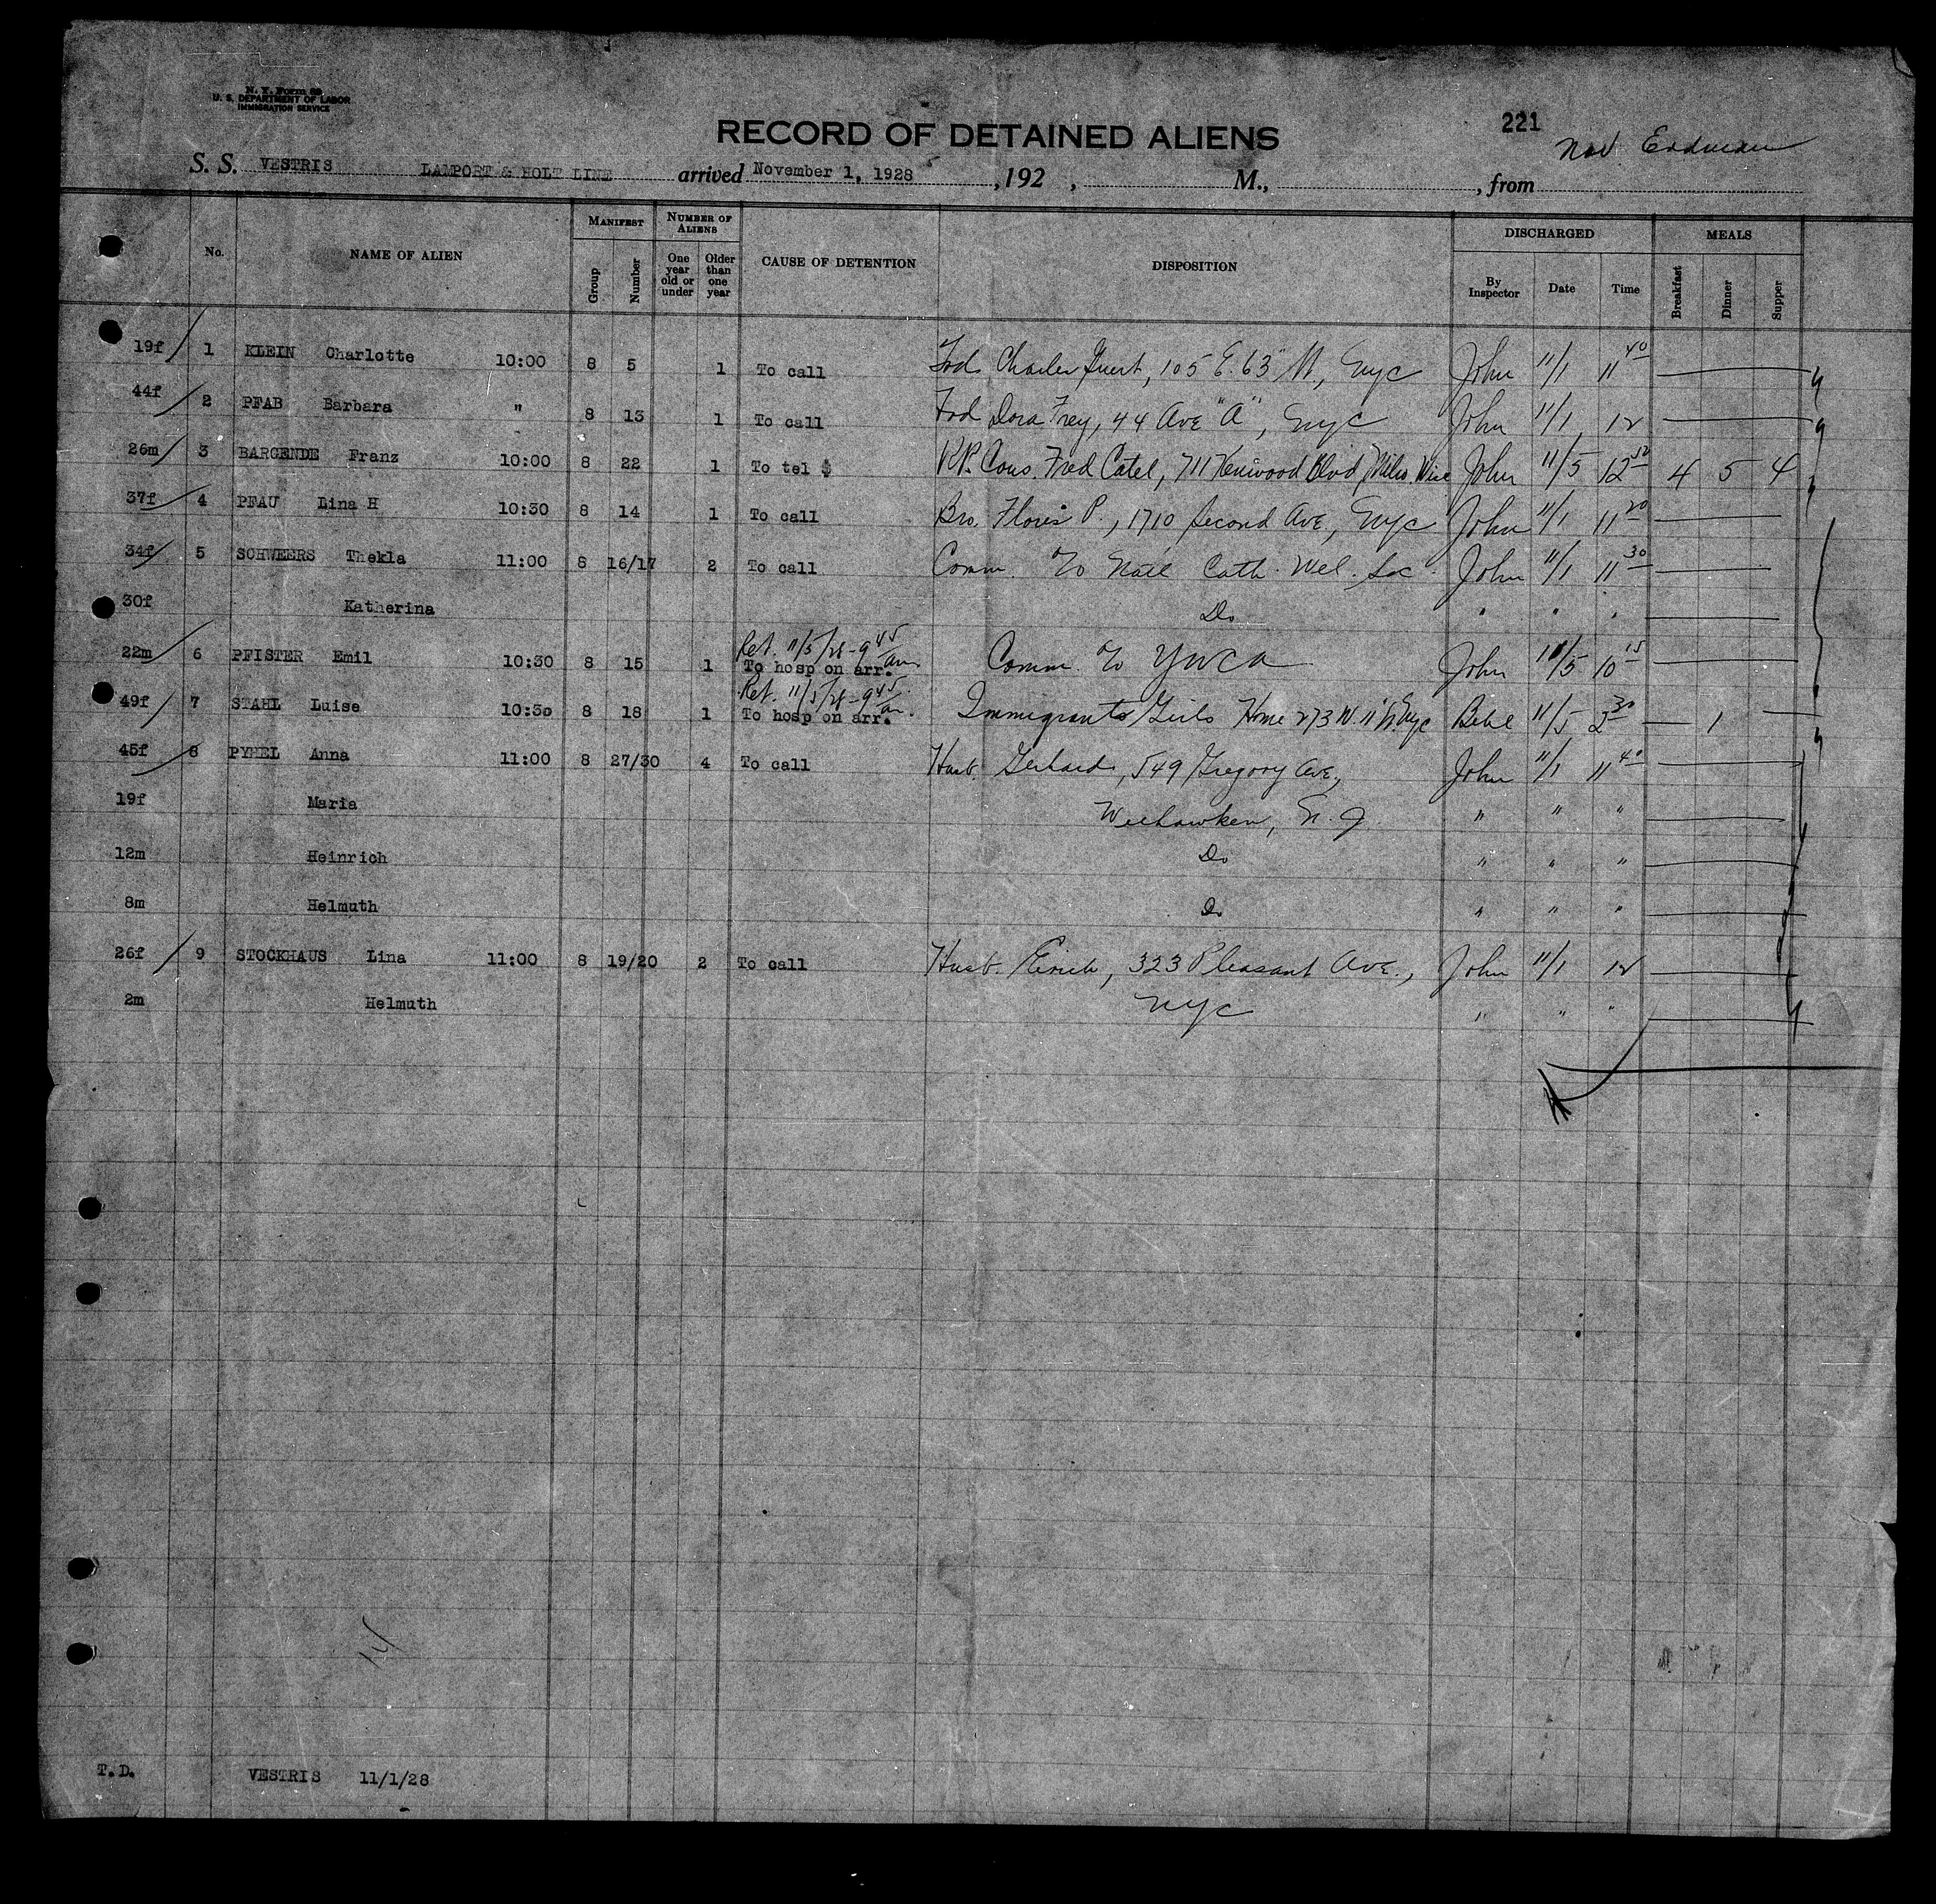 N. Y. Form 89
U. S. DEPARTMENT OF LABOR
IMMIGRATION SERVICE
RECORD OF DETAINED ALIENS
221
Nov. Erdman
S. S. VESTRIS LAMPORT & HOLT LINE arrived November 1, 1928 , 192 , M., , from
No. NAME OF ALIEN MANIFEST NUMBER OF ALIENS CAUSE OF DETENTION DISPOSITION DISCHARGED MEALS
Group Number One year old or under Older than one year By Inspector Date Time Breakfast Dinner Supper
19f 1 KLEIN Charlotte 10:00 8 5 1 To call Frd. Charles 105 E. 63 St., NYC John 11/1 11 40
44f 2 PFAB Barbara " 8 13 1 To call Frd Dora Frey, 44 Ave "A", NYC John 11/1 12
26m 3 BARGENDE Franz 10:00 8 22 1 To tel $ RR. Cous. Fred Catel, 711 Kenwood Blvd, Milw. Wisc John 11/5 12 50 4 5 4
37f 4 PFAU Lina H 10:30 8 14 1 To call Bro. Flores P., 1710 Second Ave, NYC John 11/1 11 20
34f 5 SCHWEERS Thekla 11:00 8 16/17 2 To call Comm. To Natl Cath. Wel. Soc. John 11/1 11 30
30f Katherina Do " " "
22m 6 PFISTER Emil 10:30 8 15 1 Ret. 11/5/28 - 9 45 am To hosp on arr. Comm. To YWCA John 11/5 10 15
49f 7 STAHL Luise 10:30 8 18 1 Ret. 11/5/28 - 9 45 am. To hosp on arr. Immigrants Girls Home 273 W. 11" St. NYC 11/5 2 30 1
45f 8 PYHEL Anna 11:00 8 27/30 4 To call Husb. Gerhard, 549 Gregory Ave, John 11/1 11 40
19f Maria Weehawken, N. J. " " "
12m Heinrich Do " " "
8m Helmuth Do " " "
26f 9 STOCKHAUS Lina 11:00 8 19/20 2 To call Husb. Erich, 323 Pleasant Ave., John 11/1 12
2m Helmuth NYC " " "
14
T.D. VESTRIS 11/1/28